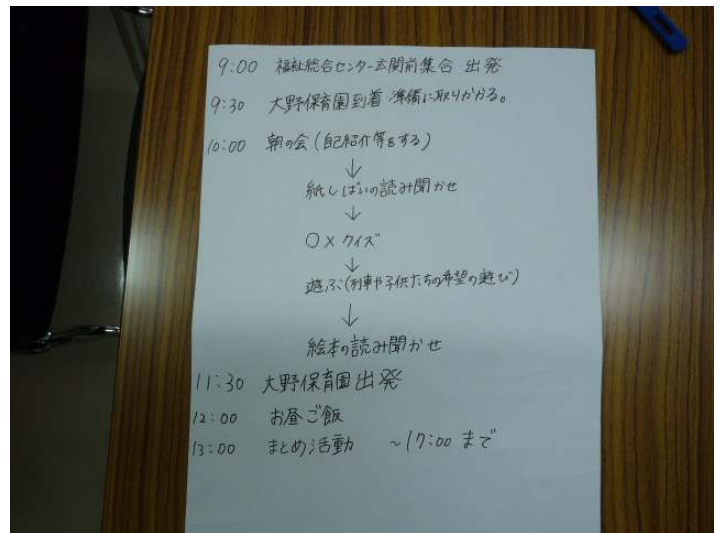 9:00 福祉総合センター玄関前集合 出発
9:30 大野保育園到着 準備に取りかかる。
10:00 朝の会(自己紹介等をする)
↓
紙しばいの読み聞かせ
↓
○×クイズ
↓
遊ぶ(列車や子供たちの希望の遊び)
↓
絵本の読み聞かせ
11:30 大野保育園出発
12:00 お昼ご飯
13:00 まとめ活動 ~17:00 まで